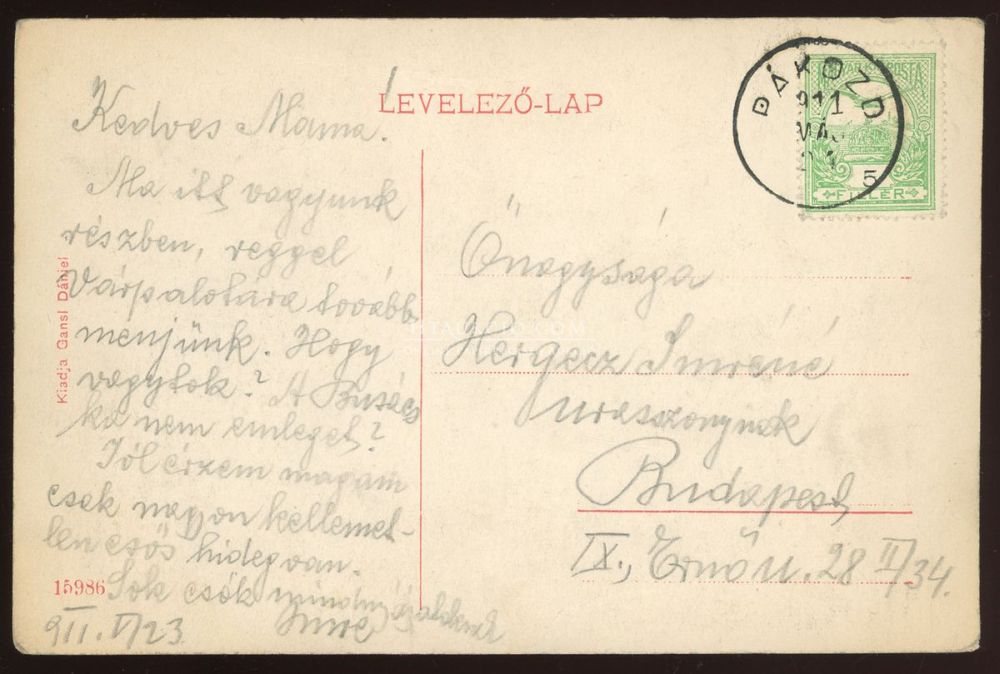 LEVELEZŐ-LAP
PÁKOZD
911
MÁJ
5
FILLÉR
Kedves Mama!
Ma itt vagyunk
részben, reggel
Várpalotára tovább
menjünk. Hogy
vagytok? A Busács
ka nem emleget?
Jól érzem magam
csak nagyon kellemet-
len esős hideg van.
Sok csók mindnyájatoknak
Imre
911. V/23
Őnagysága
Hergecz Imréné
urasszonynak
Budapest
IX., Ernő u. 28 II/34.
Kiadja Gansl Dániel
15986